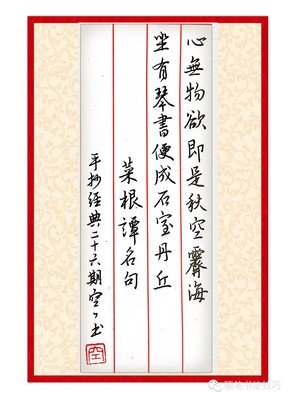 心無物欲即是秋空霽海
坐有琴書便成石室丹丘
菜根譚名句
手抄經典二十六期空々書
空
硬笔书法技巧